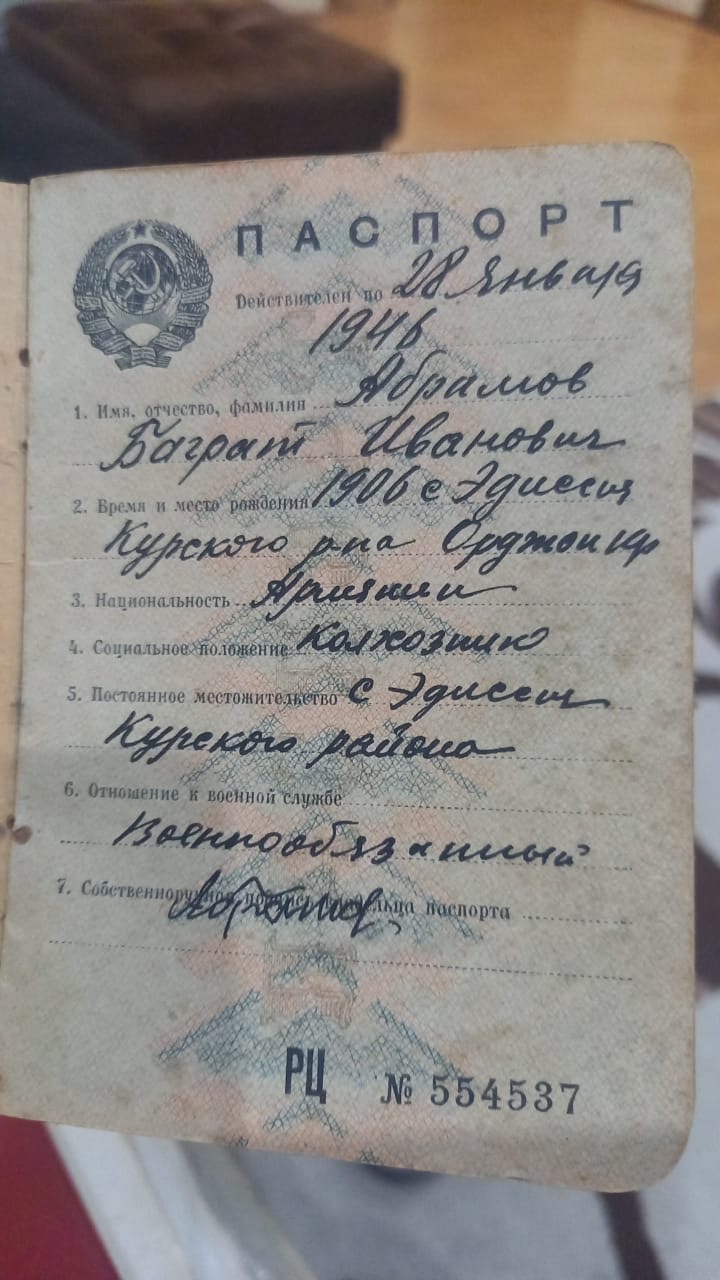 ПАСПОРТ
Действителен по 28 Января
1946
1. Имя, отчество, фамилия Абрамов
Баграт Иванович
2. Время и место рождения 1906 с Эдиссия
Курского р-на Орджоникр
3. Национальность Армянин
4. Социальное положение Колхозник
5. Постоянное местожительство с Эдиссия
Курского района
6. Отношение к военной службе
Военнообязанный
7. Собственноручная подпись владельца паспорта
РЦ № 554537